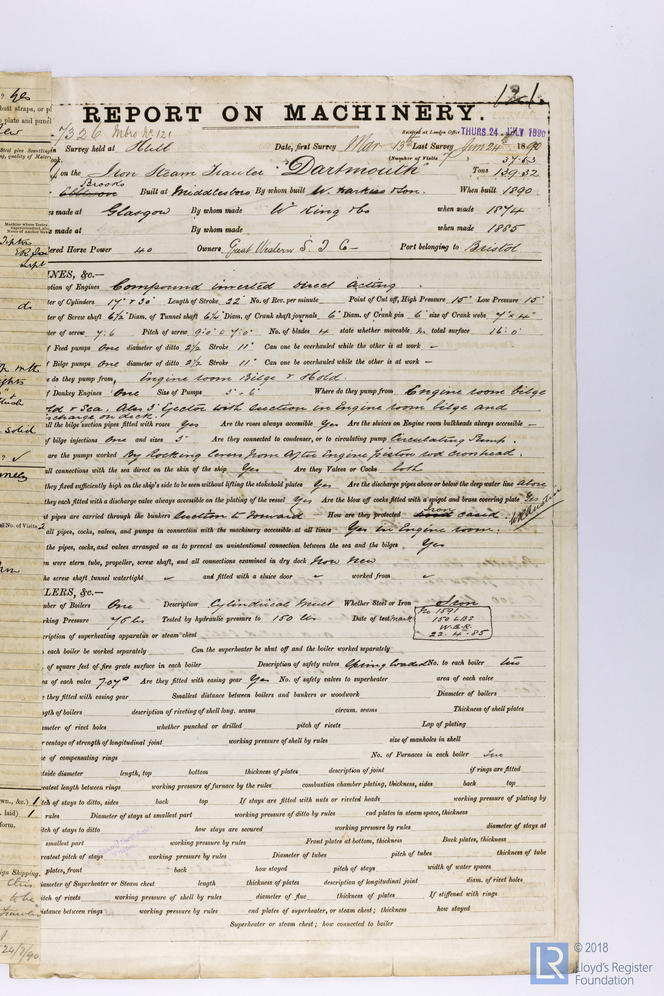 REPORT ON MACHINERY.
7326
Received at London Office THURS. 24 JULY 1890
Survey held at Hull Date, first Survey Mar 13th Last Survey 1890
(Number of Visits
on the Iron Steam Trawler "Dartmouth" Tons 139.32
Brooks Built at Middlesbro By whom built W. Harkess & Son. When built 1890
made at Glasgow By whom made W King & Co when made 1874
made at By whom made when made 1885
Horse Power 40 Owners Great Western S. F. Co Port belonging to Bristol
NES, &c.—
of Engines Compound inverted direct acting
of Cylinders 17" & 30" Length of Stroke 22 No. of Rev. per minute Point of Cut off, High Pressure 15" Low Pressure 15
of Screw shaft 6½ Diam. of Tunnel shaft 6⅛ Diam. of Crank shaft journals 6" Diam. of Crank pin 6" size of Crank webs 7" x 4"
of screw 7.6 Pitch of screw No. of blades 4 state whether moveable no total surface 16.0
Feed pumps One diameter of ditto 2½ Stroke 11" Can one be overhauled while the other is at work —
Bilge pumps One diameter of ditto 2½ Stroke 11" Can one be overhauled while the other is at work —
do they pump from, Engine room Bilge & Hold
Donkey Engines One Size of Pumps Where do they pump from Engine room bilge
& Sea. Also 3" Ejector with suction in Engine room bilge and
discharge on deck.
all the bilge suction pipes fitted with roses Yes Are the roses always accessible Yes Are the sluices on Engine room bulkheads always accessible —
of bilge injections One and sizes 3" Are they connected to condenser, or to circulating pump Circulating Pump.
are the pumps worked By Rocking levers from After Engine piston rod crosshead.
all connections with the sea direct on the skin of the ship Yes Are they Valves or Cocks both
they fixed sufficiently high on the ship's side to be seen without lifting the stokehold plates Yes Are the discharge pipes above or below the deep water line Above
they each fitted with a discharge valve always accessible on the plating of the vessel Yes Are the blow off cocks fitted with a spigot and brass covering plate Yes
pipes are carried through the bunkers Suction to Forward How are they protected Iron cased.
all pipes, cocks, valves, and pumps in connection with the machinery accessible at all times Yes in Engine room.
the pipes, cocks, and valves arranged so as to prevent an unintentional connection between the sea and the bilges Yes
were stern tube, propeller, screw shaft, and all connections examined in dry dock Now New
the screw shaft tunnel watertight and fitted with a sluice door worked from
LERS, &c.—
Number of Boilers One Description Cylindrical Mult Whether Steel or Iron Iron
Working Pressure 75 lbs Tested by hydraulic pressure to 150 lbs Date of test
No 1591
150 LBS
W.B.R.
22.4.85
description of superheating apparatus or steam chest
each boiler be worked separately Can the superheater be shut off and the boiler worked separately
of square feet of fire grate surface in each boiler Description of safety valves Spring loaded No. to each boiler two
area of each valve 7.07" Are they fitted with easing gear Yes No. of safety valves to superheater area of each valve
they fitted with easing gear Smallest distance between boilers and bunkers or woodwork Diameter of boilers
length of boilers description of riveting of shell long. seams circum. seams Thickness of shell plates
diameter of rivet holes whether punched or drilled pitch of rivets Lap of plating
percentage of strength of longitudinal joint working pressure of shell by rules size of manholes in shell
of compensating rings No. of Furnaces in each boiler Two
outside diameter length, top bottom thickness of plates description of joint if rings are fitted
greatest length between rings working pressure of furnace by the rules combustion chamber plating, thickness, sides back top
pitch of stays to ditto, sides back top If stays are fitted with nuts or riveted heads working pressure of plating by
rules Diameter of stays at smallest part working pressure of ditto by rules end plates in steam space, thickness
pitch of stays to ditto how stays are secured working pressure by rules diameter of stays at
smallest part working pressure by rules Front plates at bottom, thickness Back plates, thickness
greatest pitch of stays working pressure by rules Diameter of tubes pitch of tubes thickness of tube
plates, front back how stayed pitch of stays width of water spaces
diameter of Superheater or Steam chest length thickness of plates description of longitudinal joint diam. of rivet holes
pitch of rivets working pressure of shell by rules diameter of flue thickness of plates If stiffened with rings
distance between rings working pressure by rules end plates of superheater, or steam chest; thickness how stayed
Superheater or steam chest; how connected to boiler
24/7/90
LR © 2018
Lloyd's Register
Foundation